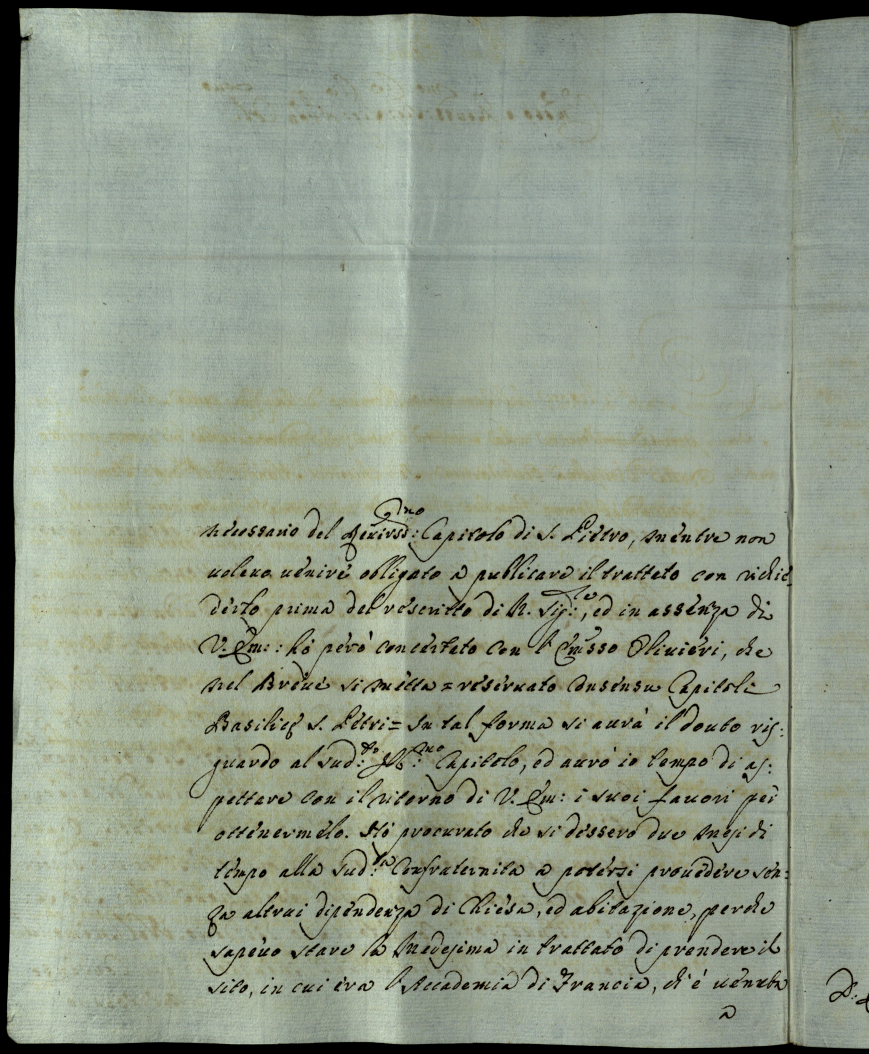 necessario del Reviss:mo Capitolo di S. Pietro, mentre non
volevo venire obligato a publicare il trattato con richie-
derlo prima del rescritto di N. Sig:re, ed in assenza di
V. Em: : hò però concertato con l'Em:sso Olivieri, che
nel Breve si metta = reservato consensu Capituli
Basilicę S. Petri = In tal forma si avrà il dovuto ris-
guardo al sud:to Capitolo, ed avrò io tempo di as-
pettare con il ritorno di V. Em: i suoi favori per
ottenermelo. Hò procurato che si dessero due mesi di
tempo alla sud:ta Confraternita a potersi provedere sen-
za altrui dipendenza di Chiesa, ed abitazione, perche
sapevo stare la medesima in trattato di prendere il
sito, in cui era l'Accademia di Francia, ch'è venuta
a